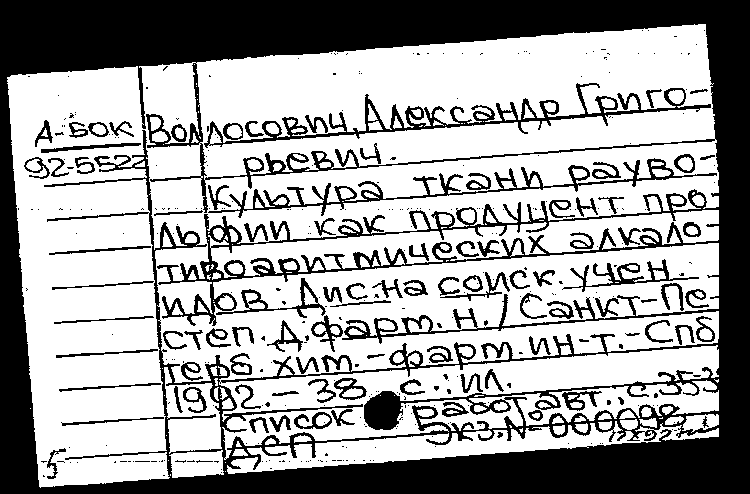 А-БОК Воллосович, Александр Григо-
92-5522 рьевич.
Культура ткани рауво-
льфии как продуцент про-
тивоаритмических алкало-
идов: Дис.на соиск. учен.
степ. д.фарм.н. / Санкт-Пе-
терб. хим.-фарм.ин-т.-Спб
1992.- 38 с.: ил.
Список работ авт.: с.353
Экз.№ 000098
ДСП.
5